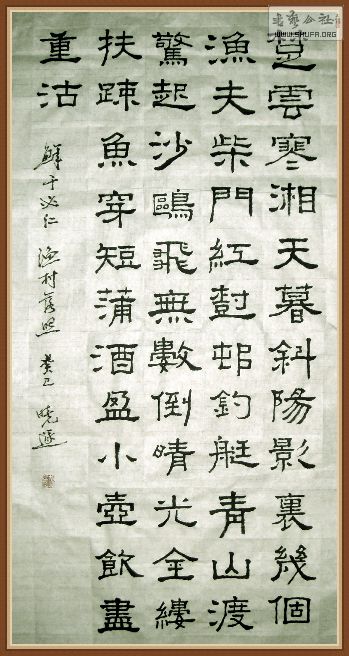 楚雲寒湘天暮斜陽影裏幾個
漁夫柴門紅尌邨釣艇青山渡
驚起沙鷗飛無數倒晴光金縷
扶踈魚穿短蒲酒盈小壺飲盡
重沽
鮮于必仁 漁村落照 癸巳
書藝公社
WWW.SHUFA.ORG